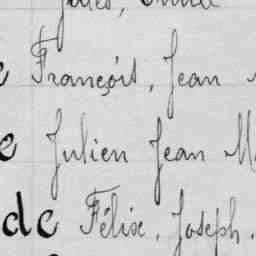 Jules,
e François, Jean
e Julien Jean M
de Félix, Joseph.